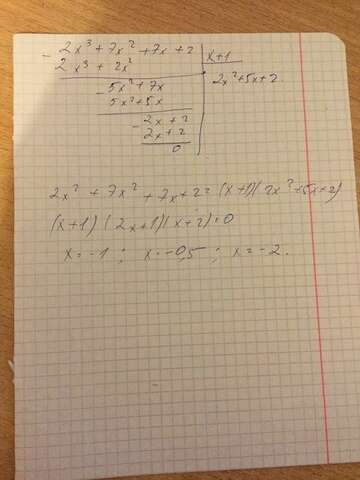 - 2x³ + 7x² + 7x + 2 | x+1
2x³ + 2x² | 2x² + 5x + 2
- 5x² + 7x
5x² + 5x
- 2x + 2
2x + 2
0
2x² + 7x² + 7x + 2 = (x+1)(2x²+5x+2)
(x+1)(2x+1)(x+2)=0
x=-1 ; x=-0,5 ; x=-2.